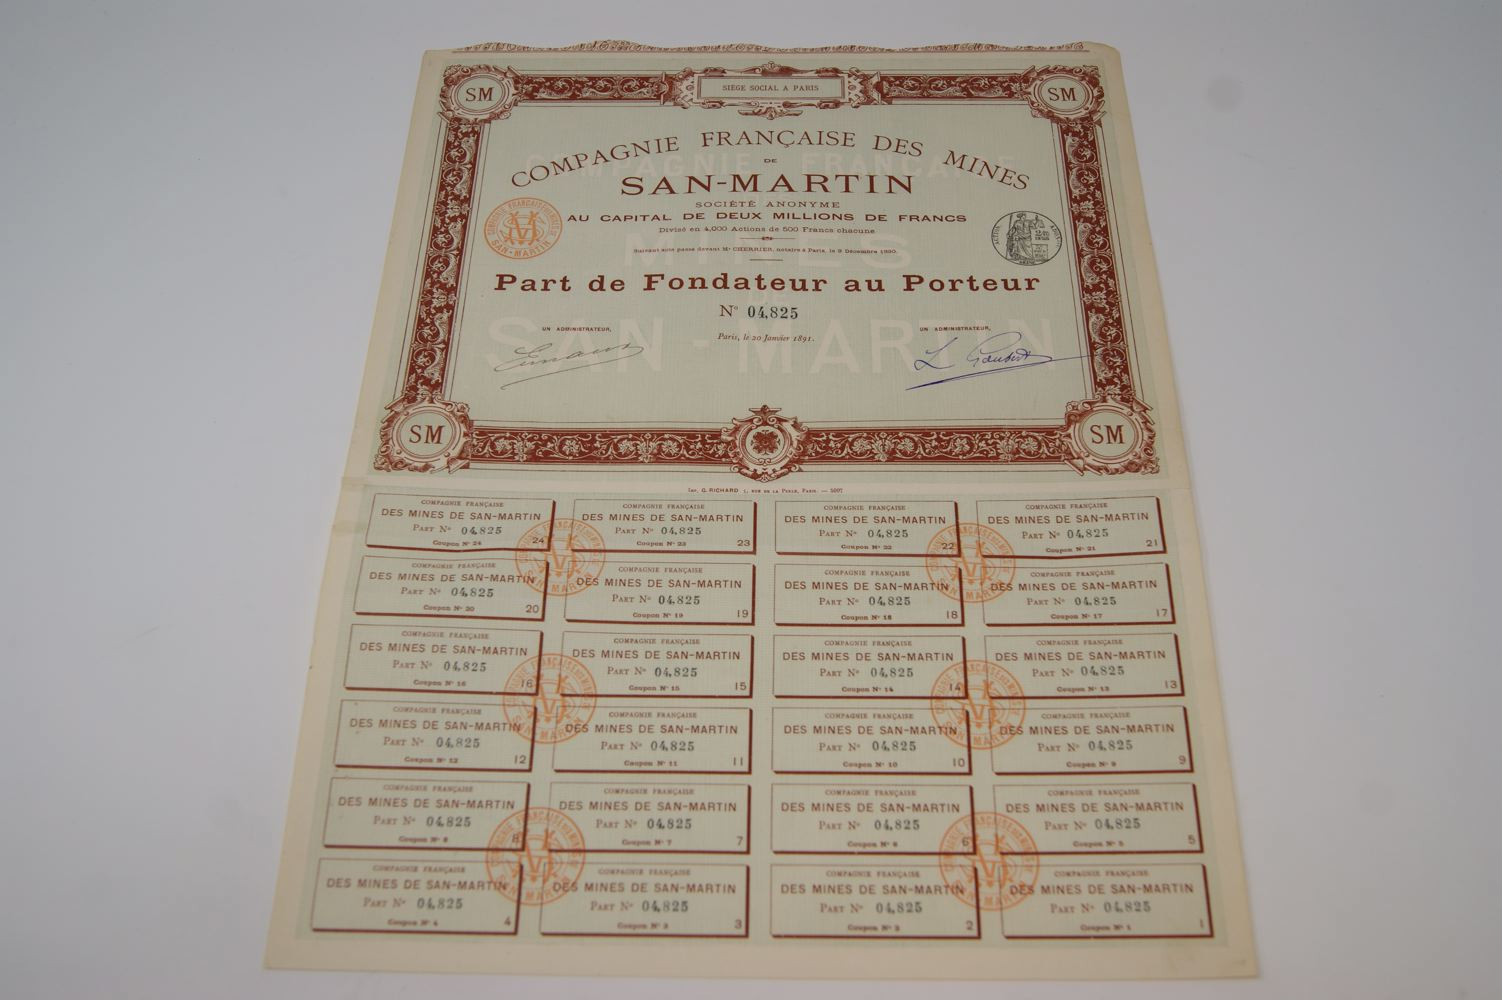 SIÈGE SOCIAL A PARIS
SM
SM
COMPAGNIE FRANÇAISE DES MINES
DE
SAN-MARTIN
SOCIÉTÉ ANONYME
AU CAPITAL DE DEUX MILLIONS DE FRANCS
Divisé en 4,000 Actions de 500 Francs chacune
Suivant acte passé devant Me CHERRIER, notaire à Paris, le 9 Décembre 1890.
Part de Fondateur au Porteur
No 04,825
UN ADMINISTRATEUR,
UN ADMINISTRATEUR,
Paris, le 20 Janvier 1891.
L Goubert
SM
SM
Imp. G. RICHARD 7, RUE DE LA PERLE, PARIS. — 5097
COMPAGNIE FRANÇAISE
DES MINES DE SAN-MARTIN
PART No 04,825
Coupon No 24
24
COMPAGNIE FRANÇAISE
DES MINES DE SAN-MARTIN
PART No 04,825
Coupon No 23
23
COMPAGNIE FRANÇAISE
DES MINES DE SAN-MARTIN
PART No 04,825
Coupon No 22
22
COMPAGNIE FRANÇAISE
DES MINES DE SAN-MARTIN
PART No 04,825
Coupon No 21
21
COMPAGNIE FRANÇAISE
DES MINES DE SAN-MARTIN
PART No 04,825
Coupon No 20
20
COMPAGNIE FRANÇAISE
DES MINES DE SAN-MARTIN
PART No 04,825
Coupon No 19
19
COMPAGNIE FRANÇAISE
DES MINES DE SAN-MARTIN
PART No 04,825
Coupon No 18
18
COMPAGNIE FRANÇAISE
DES MINES DE SAN-MARTIN
PART No 04,825
Coupon No 17
17
COMPAGNIE FRANÇAISE
DES MINES DE SAN-MARTIN
PART No 04,825
Coupon No 16
16
COMPAGNIE FRANÇAISE
DES MINES DE SAN-MARTIN
PART No 04,825
Coupon No 15
15
COMPAGNIE FRANÇAISE
DES MINES DE SAN-MARTIN
PART No 04,825
Coupon No 14
14
COMPAGNIE FRANÇAISE
DES MINES DE SAN-MARTIN
PART No 04,825
Coupon No 13
13
COMPAGNIE FRANÇAISE
DES MINES DE SAN-MARTIN
PART No 04,825
Coupon No 12
12
COMPAGNIE FRANÇAISE
DES MINES DE SAN-MARTIN
PART No 04,825
Coupon No 11
11
COMPAGNIE FRANÇAISE
DES MINES DE SAN-MARTIN
PART No 04,825
Coupon No 10
10
COMPAGNIE FRANÇAISE
DES MINES DE SAN-MARTIN
PART No 04,825
Coupon No 9
9
COMPAGNIE FRANÇAISE
DES MINES DE SAN-MARTIN
PART No 04,825
Coupon No 8
8
COMPAGNIE FRANÇAISE
DES MINES DE SAN-MARTIN
PART No 04,825
Coupon No 7
7
COMPAGNIE FRANÇAISE
DES MINES DE SAN-MARTIN
PART No 04,825
Coupon No 6
6
COMPAGNIE FRANÇAISE
DES MINES DE SAN-MARTIN
PART No 04,825
Coupon No 5
5
COMPAGNIE FRANÇAISE
DES MINES DE SAN-MARTIN
PART No 04,825
Coupon No 4
4
COMPAGNIE FRANÇAISE
DES MINES DE SAN-MARTIN
PART No 04,825
Coupon No 3
3
COMPAGNIE FRANÇAISE
DES MINES DE SAN-MARTIN
PART No 04,825
Coupon No 2
2
COMPAGNIE FRANÇAISE
DES MINES DE SAN-MARTIN
PART No 04,825
Coupon No 1
1